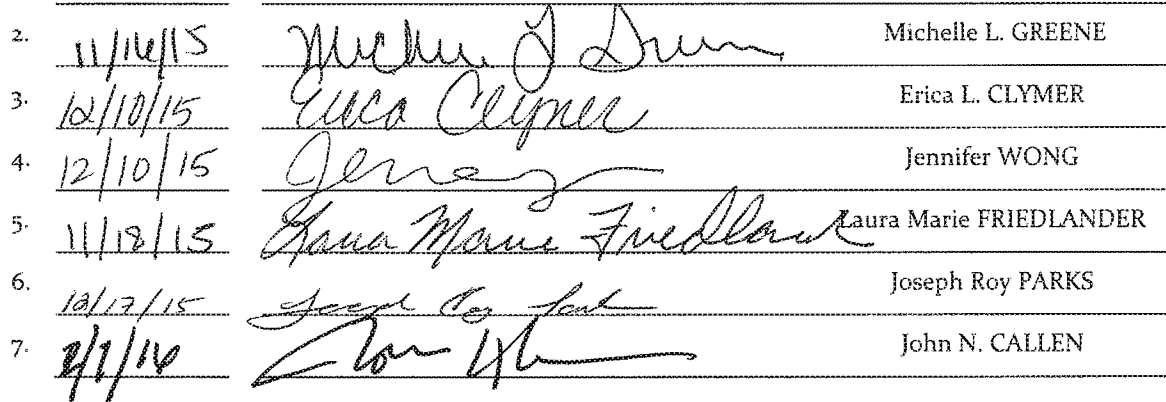 2. 11/16/15 Michelle L. GREENE
3. 12/10/15 Erica Clymer Erica L. CLYMER
4. 12/10/15 Jennifer WONG
5. 11/18/15 Laura Marie Friedland Laura Marie FRIEDLANDER
6. 12/17/15 Joseph Roy Park Joseph Roy PARKS
7. John N. CALLEN